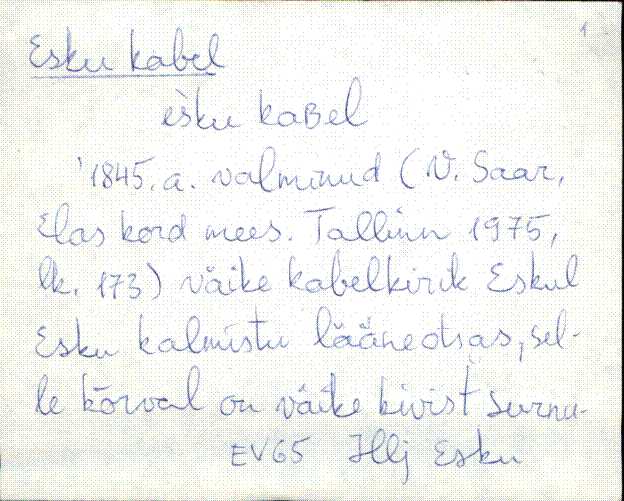 1
Esku kabel
èsku kaBel
'1845. a. valminud (V. Saar,
Elas kord mees. Tallinn 1975,
lk. 173) väike kabelkirik Eskul
Esku kalmistu lääneotsas, sel-
le kõrval on väike kivist surnu-
EV65 Jllj Esku